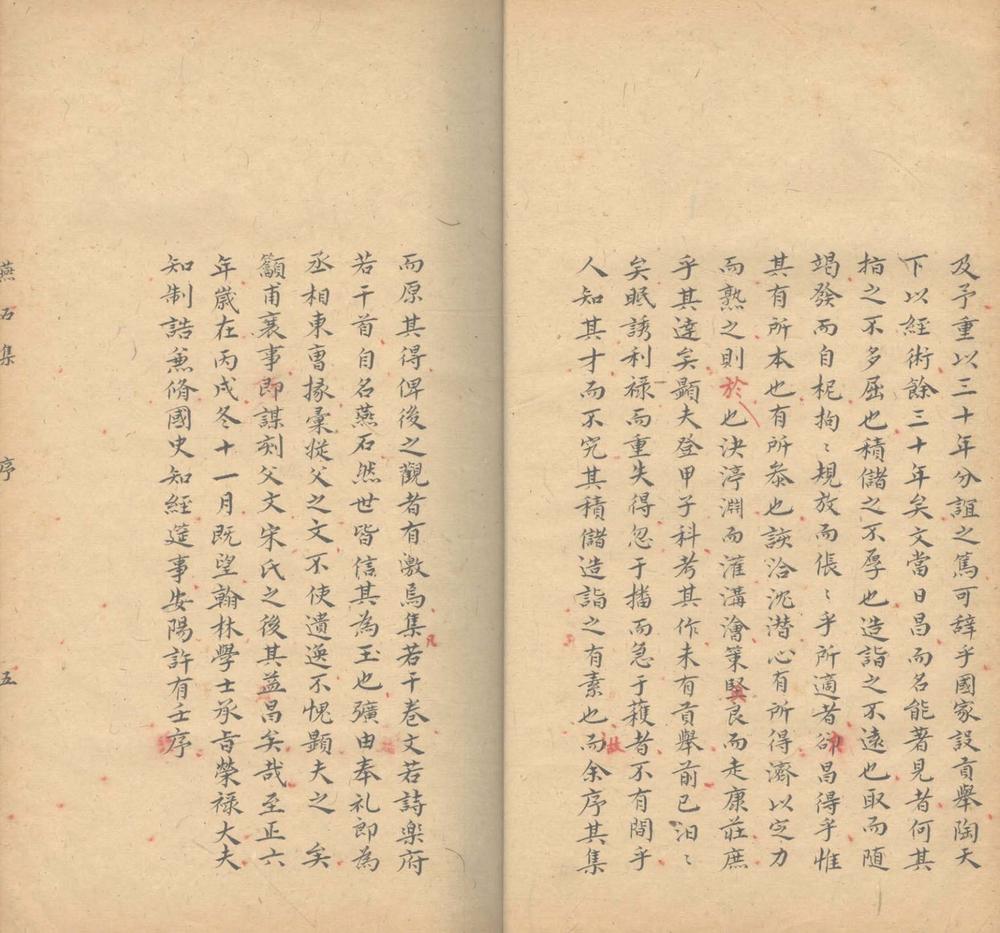 及予重以三十年分誼之篤可辭乎國家設貢舉陶天
下以經術餘三十年矣文當日昌而名能著見者何其
指之不多屈也積儲之不厚也造詣之不遠也取而随
竭發而自柅拘〻規放而倀〻乎所適者卻昌得乎惟
其有所本也有所叅也詼洽沈潜心有所得濟以定力
而熟之則於也決渟淵而漼溝澮策堅良而走康莊庶
乎其達矣顕夫登甲子科考其作未有貢舉前已汩〻
矣眂誘利禄而重失得忽于播而急于穫者不有間乎
人知其才而不究其積儲造詣之有素也而余序其集
故
而原其得俾後之觀者有激焉集若干卷文若詩楽府
凡
若干首自名燕石然世皆信其為玉也彍由奉礼郎為
丞相東曺掾彙挻父之文不使遺逸不愧顕夫之 矣
籲甫襄事即謀刻父文宋氏之後其益昌矣哉至正六
年嵗在丙戌冬十一月既望翰林學士承㫖榮禄大夫
知制誥兼脩國史知經筵事安陽許有壬序
燕石集 序 五